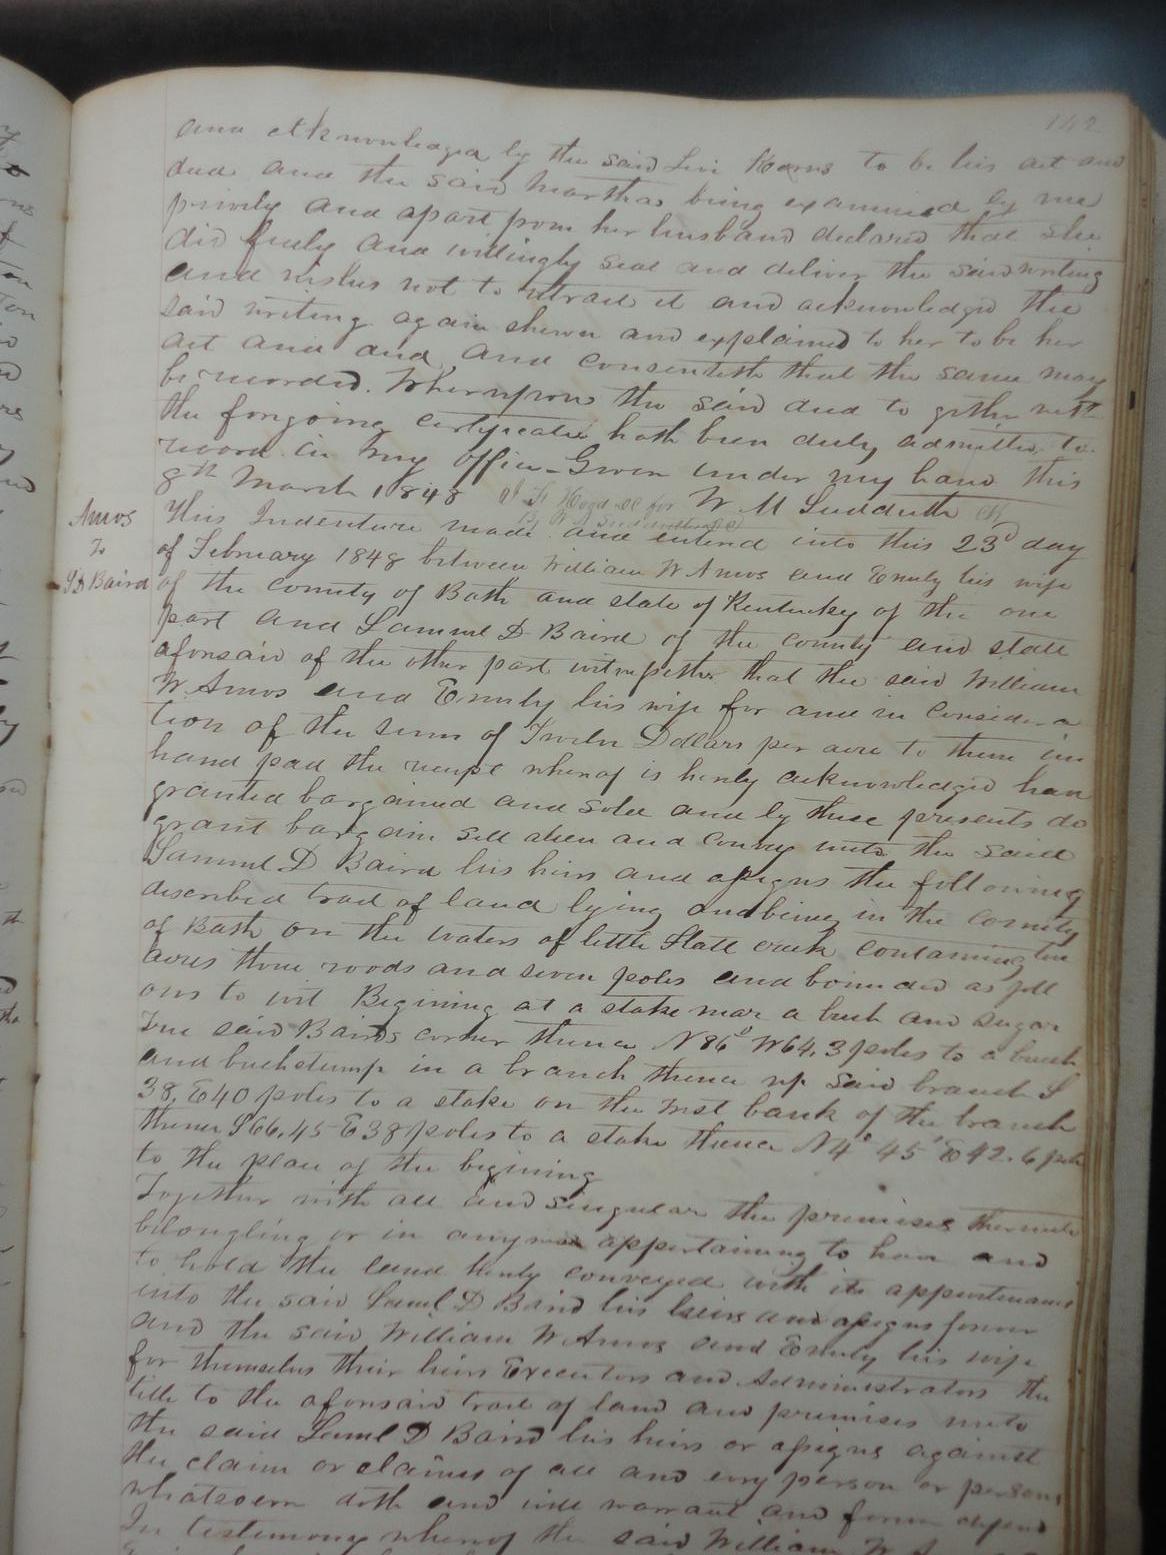 142
and Acknowledged by the said Levi Kerns to be his act and
deed and the said Martha being examined by me
privily and apart from her husband declared that she
did freely and willingly seal and deliver the said writing
and wishes not to retract it and acknowledged the
said writing again shewn and explained to her to be her
act and and and consenteth that the same may
be recorded. Whereupon the said deed to gether with
the foregoing certificate hath been duly admitted to
record in my office - Given under my hand this
8th March 1848 W M Sudduth Clk
Amos
To
S D Baird
This Indenture made and enterd into this 23d day
of February 1848 between William W Amos and Emily his wife
of the county of Bath and state of Kentucky of the one
part and Samuel D Baird of the county and state
aforesaid of the other part witnesseth that the said William
W Amos and Emily his wife for and in Considera
tion of the sum of Twelve Dollars per acre to them in
hand paid the receipt whereof is hereby acknowledged have
granted bargained and sold and by these presents do
grant bargain sell alien and convey unto the said
Samuel D Baird his heirs and assigns the following
described tract of land lying and being in the County
of Bath on the waters of little Slate creek containing ten
acres three roods and seven poles and bounded as foll
ows to wit Begining at a stake near a buck and sugar
tree said Bairds corner thence N86° W64.3 poles to a buck
and buckstump in a branch thence up said branch S
38. E40 poles to a stake on the west bank of the branch
thence S66.45 E38 poles to a stake thence N4° 45' E42.6 poles
to the place of the begining
Together with all and singular the premises thereunto
belongling or in anywise appertaining to have and
to hold the land hereby conveyed with its appurtenances
unto the said Saml D Baird his heirs and assigns forever
and the said William W Amos and Emily his wife
for themselves their heirs Executors and Administrators the
title to the aforesaid tract of land and premises unto
the said Saml D Baird his heirs or assigns against
the claim or claims of all and every person or persons
whatsoever doth and will warrant and forever defend
In testimony whereof the said William W